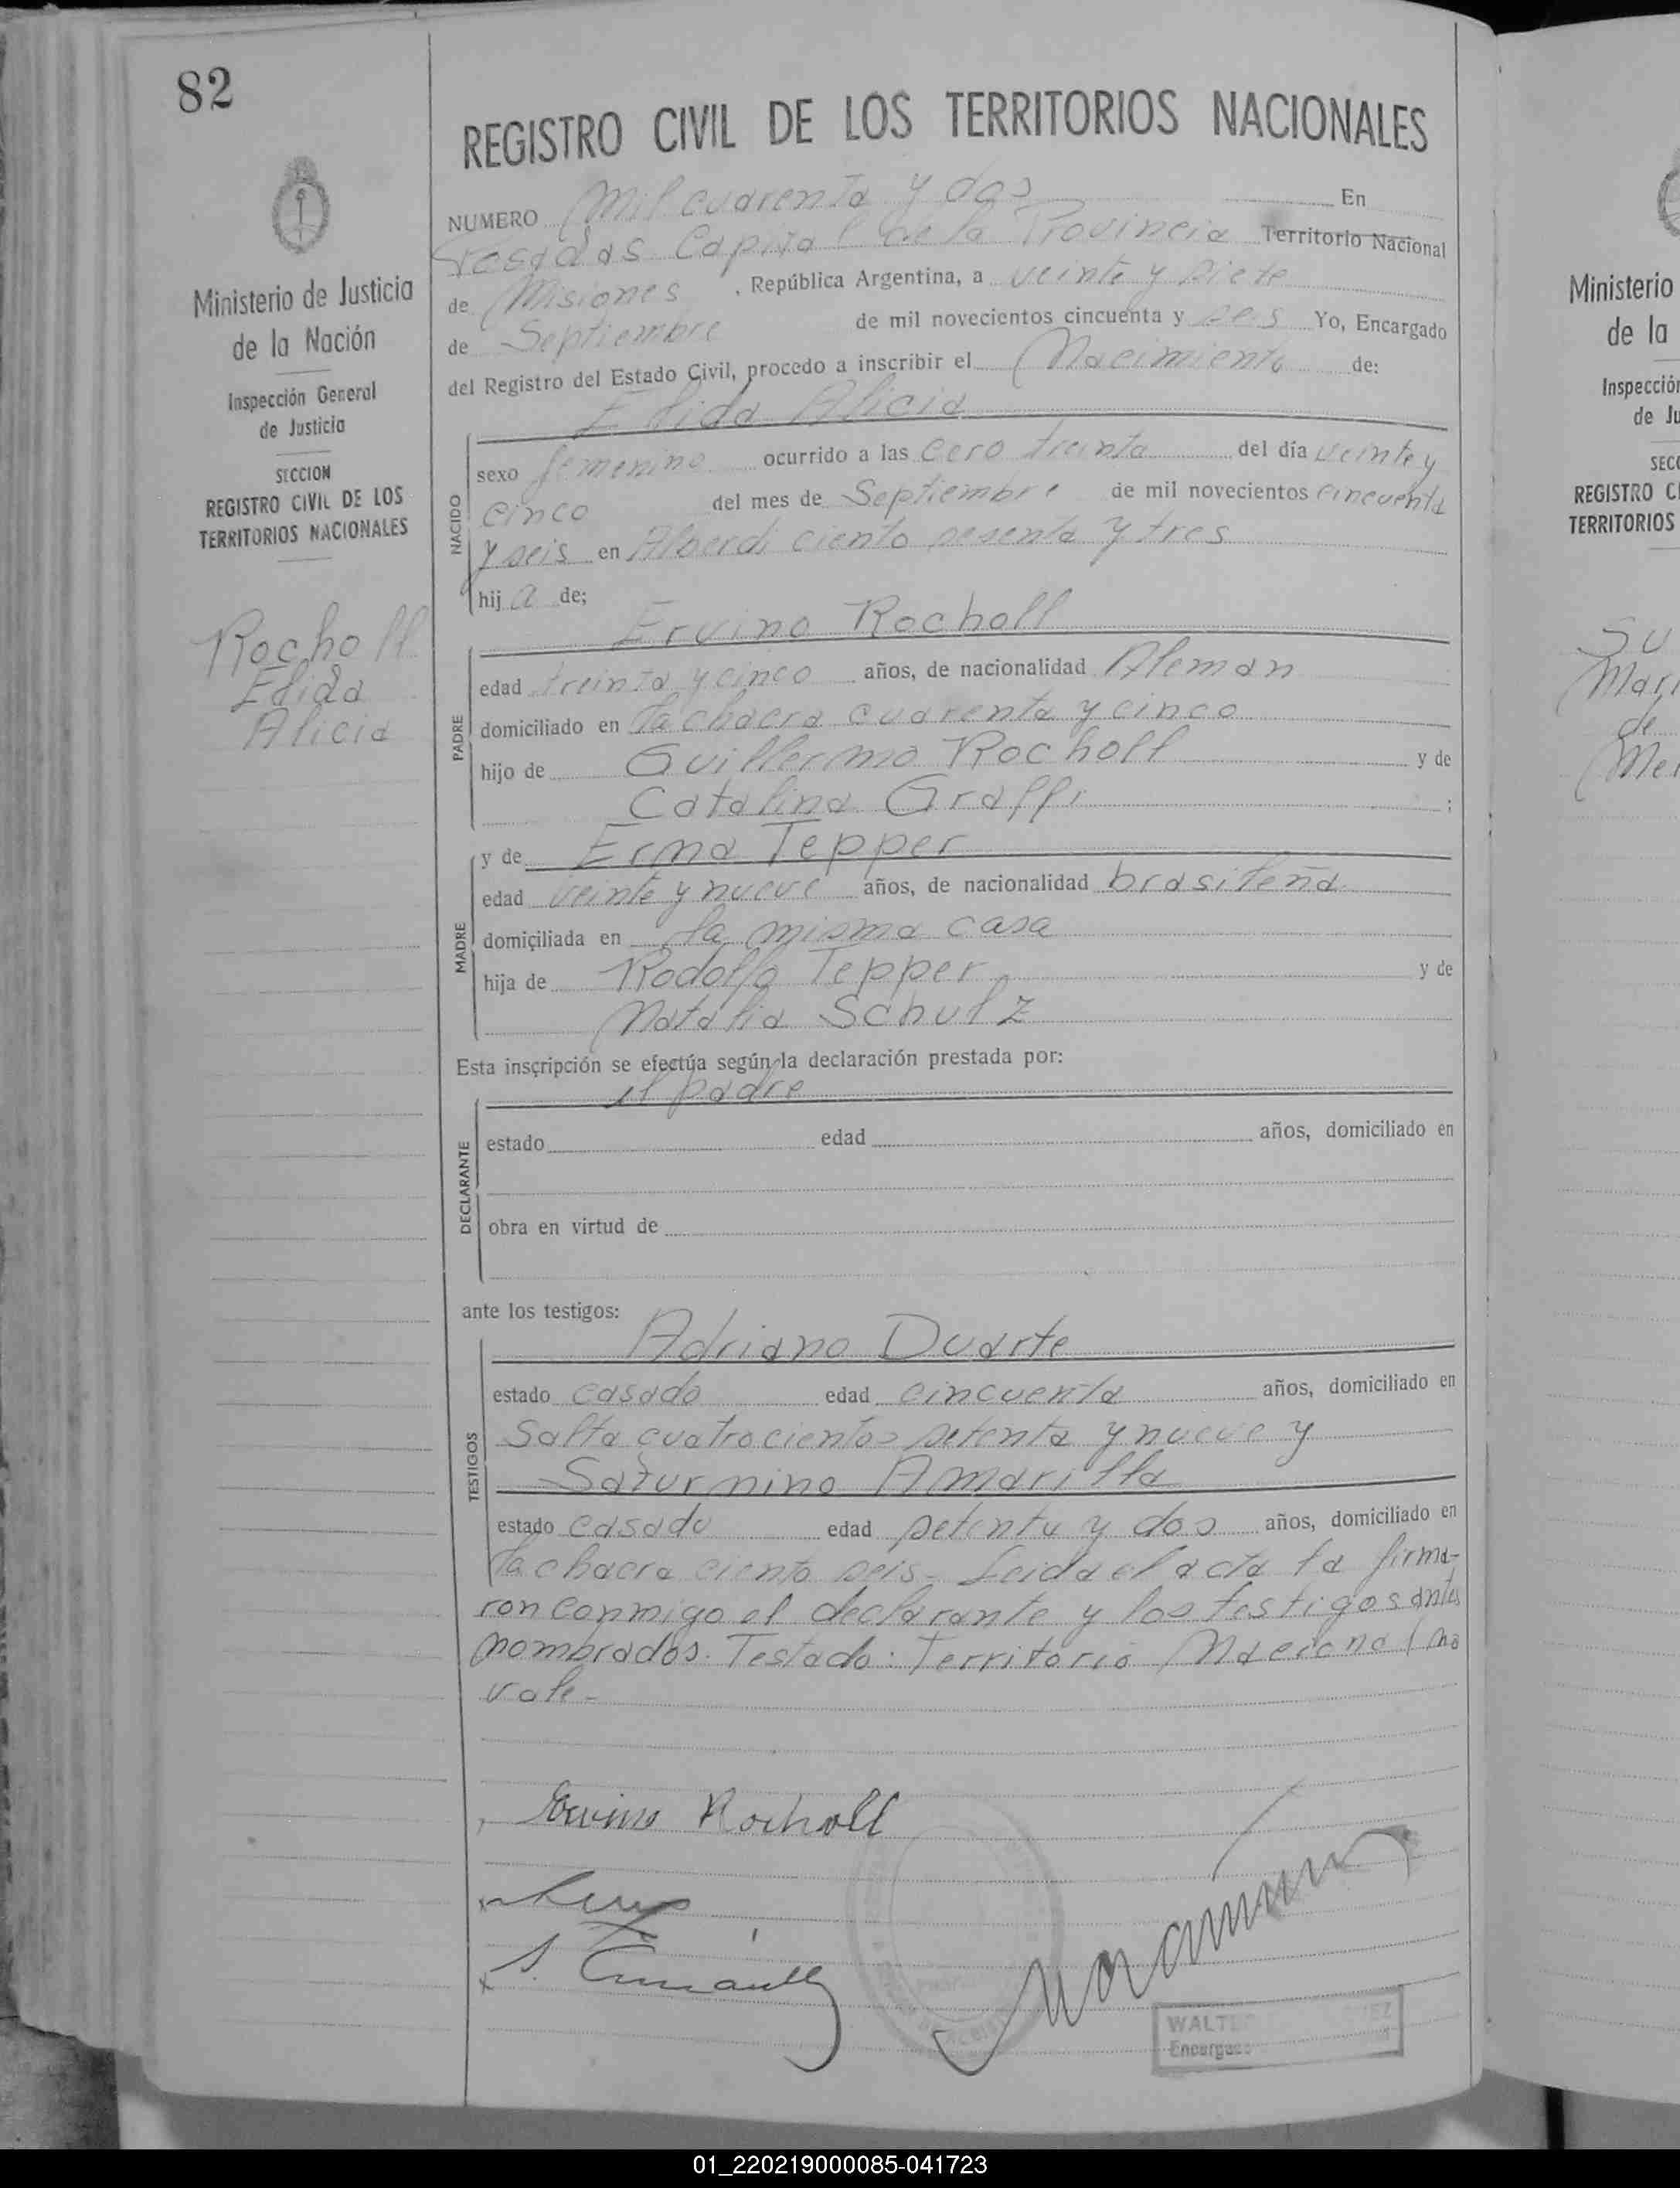 82
REGISTRO CIVIL DE LOS TERRITORIOS NACIONALES
NUMERO Mil cuarenta y dos En
Posadas Capital de la Provincia Territorio Nacional
de Misiones, República Argentina, a veinte y siete
de Septiembre de mil novecientos cincuenta y seis Yo, Encargado
del Registro del Estado Civil, procedo a inscribir el Nacimiento de:
Elida Alicia
NACIDO
sexo femenino ocurrido a las cero treinta del día veinte y
cinco del mes de Septiembre de mil novecientos cincuenta
y seis en Alberdi ciento sesenta y tres
hija de;
Ervino Rocholl
PADRE
edad treinta y cinco años, de nacionalidad Aleman
domiciliado en la chacra cuarenta y cinco
hijo de Guillermo Rocholl y de
Catalina Graffi ;
y de Erna Tepper
MADRE
edad veinte y nueve años, de nacionalidad brasileña
domiciliada en la misma casa
hija de Rodolfo Tepper y de
Natalia Schulz
Esta inscripción se efectúa según la declaración prestada por:
el padre
DECLARANTE
estado edad años, domiciliado en
obra en virtud de
ante los testigos:
Adriano Duarte
TESTIGOS
estado casado edad cincuenta años, domiciliado en
Salta cuatrocientos setenta y nueve y
Saturnino Amarilla
estado casado edad setenta y dos años, domiciliado en
la chacra ciento seis- Leida el acta la firma-
ron conmigo el declarante y los testigos antes
nombrados. Testado: Territorio Nacional no
vale-
Ervino Rocholl
S. Amarilla
WALT
Encargado
Ministerio de Justicia
de la Nación
Inspección General
de Justicia
SECCION
REGISTRO CIVIL DE LOS
TERRITORIOS NACIONALES
Rocholl
Elida
Alicia
Ministerio
de la
Inspección
de Ju
SECC
REGISTRO CI
TERRITORIOS
Su
Mari
de
Mer
01_220219000085-041723